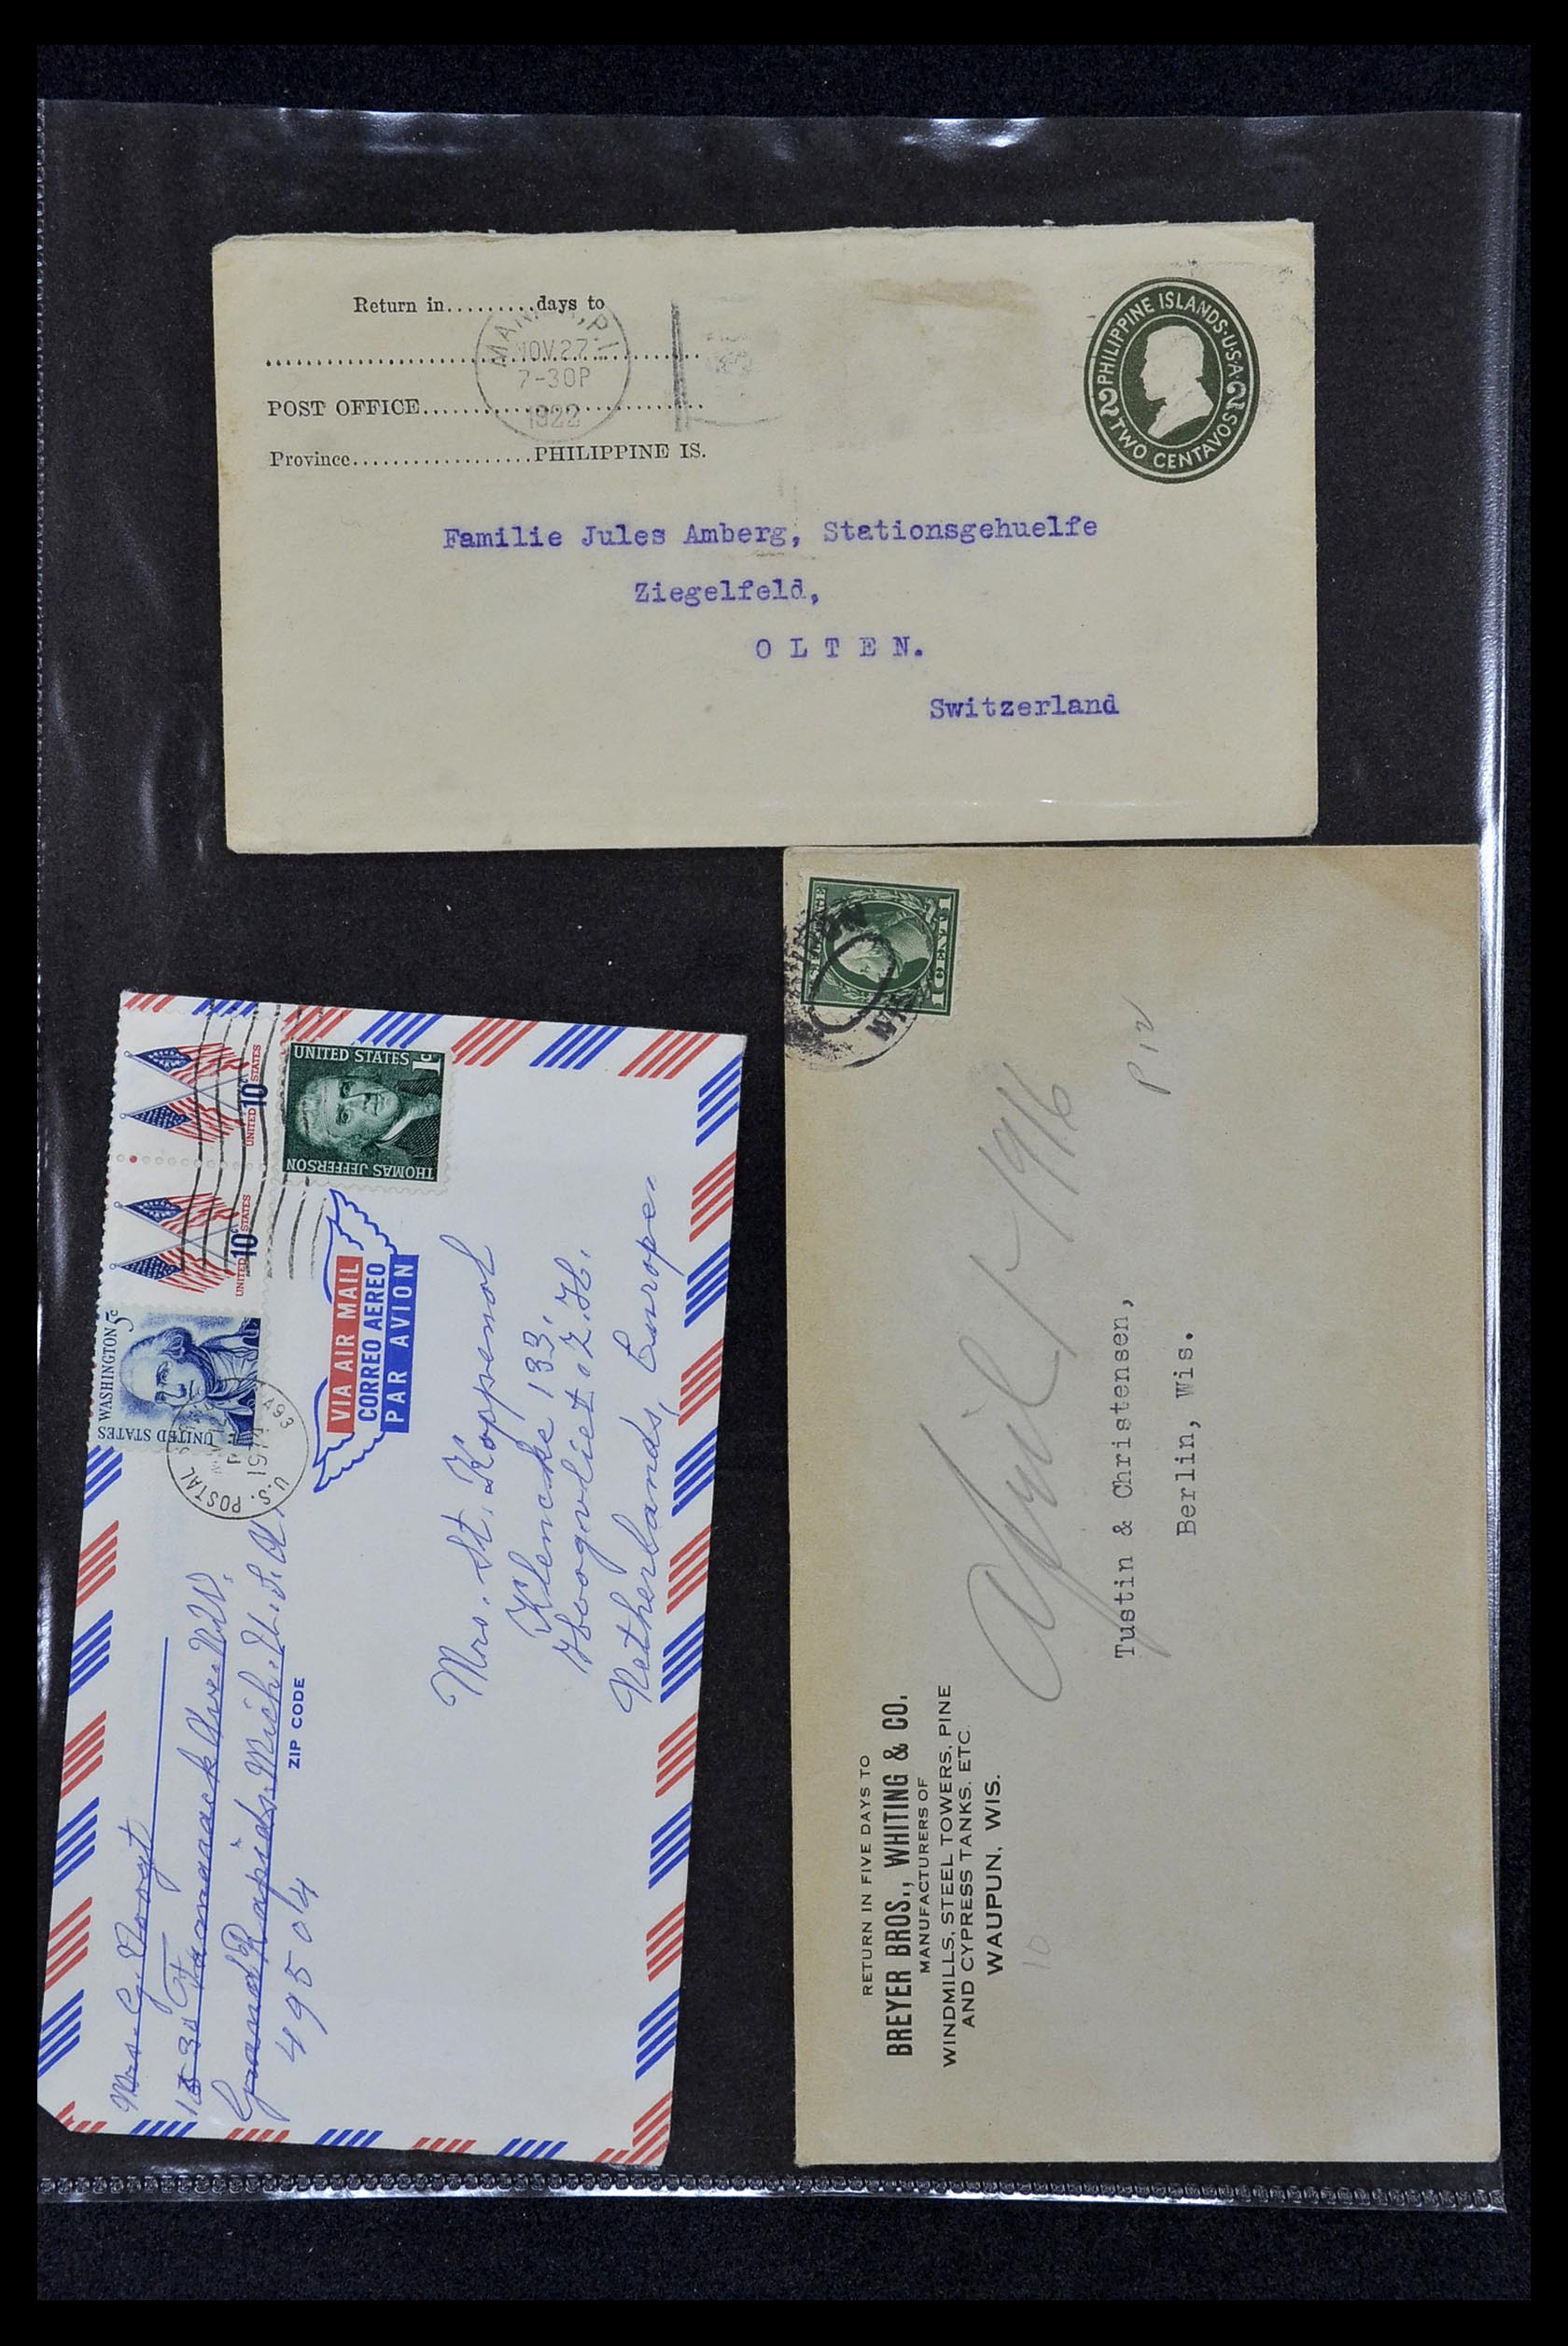 Return in.........days to
MANILA, P.I.
NOV. 27
7-30P
1922
POST OFFICE............................
Province..................PHILIPPINE IS.
PHILIPPINE ISLANDS·U·S·A·
2 TWO CENTAVOS 2
Familie Jules Amberg, Stationsgehuelfe
Ziegelfeld,
O L T E N.
Switzerland
UNITED STATES 10c
UNITED STATES 10c
UNITED STATES 1c
THOMAS JEFFERSON
WASHINGTON 5c
UNITED STATES
U.S. POSTAL
493
VIA AIR MAIL
CORREO AEREO
PAR AVION
Mrs. G. Voogt
Tamarack Ave. N.W.
Grand Rapids. Mich. U.S.A.
ZIP CODE
49504
Mrs. St. Koppenol
Klencke 133.
Hoogvliet. Z.H.
Netherlands, Europe.
1 CENT 1
RETURN IN FIVE DAYS TO
BREYER BROS., WHITING & CO.
MANUFACTURERS OF
WINDMILLS, STEEL TOWERS, PINE
AND CYPRESS TANKS. ETC.
WAUPUN, WIS.
10
April 1916
Tustin & Christensen,
Berlin, Wis.